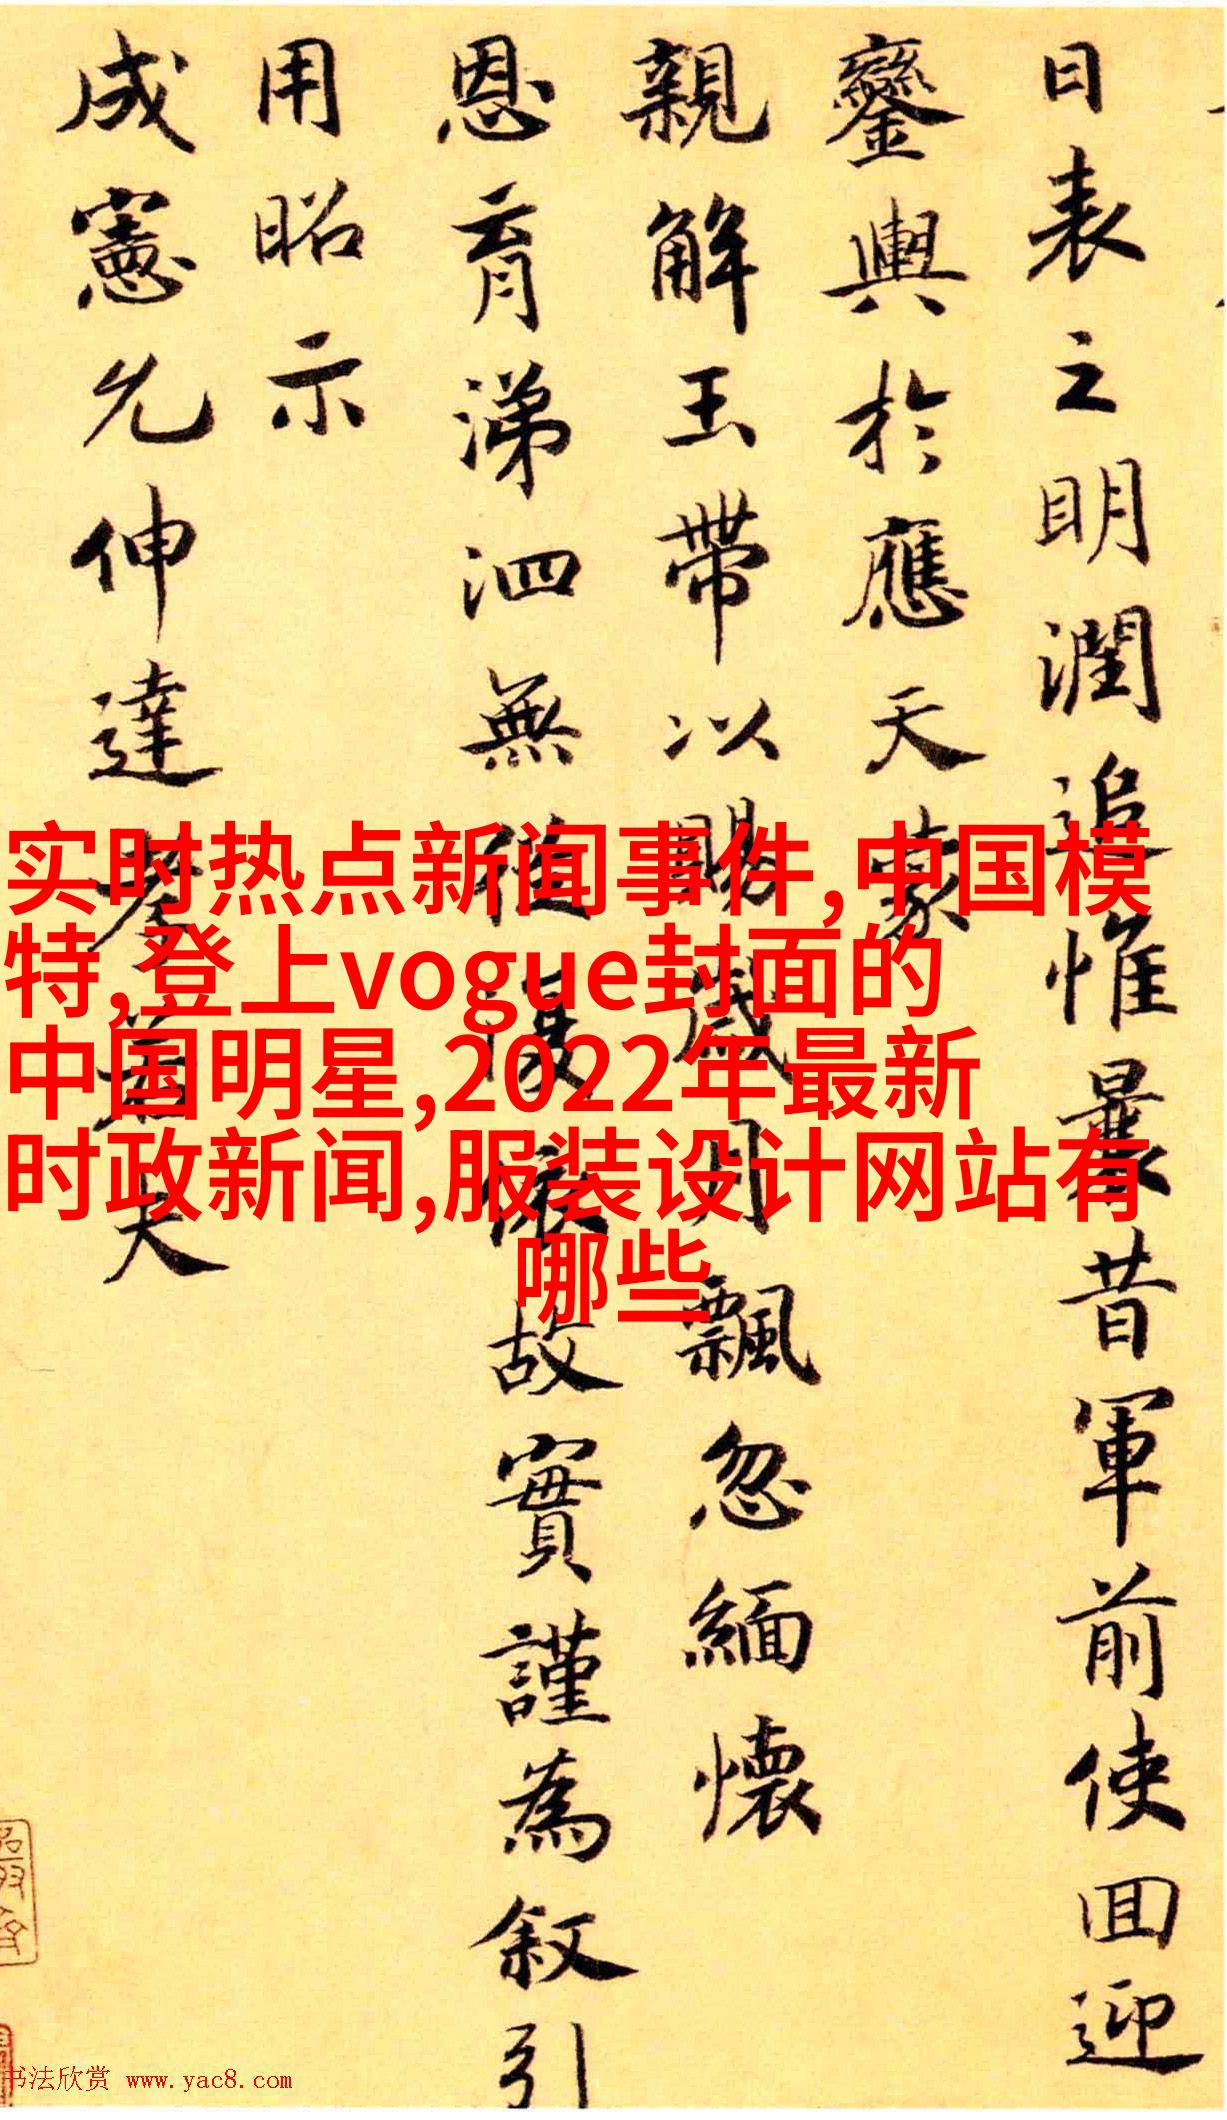 日表之明潤追惟曩昔軍前使回迎
鑾輿於應天蒙
親解玉帶以賜歲月飄忽緬懷
恩育涕泗無從故實謹為叙引
用昭示
成憲允伸達孝若夫
实时热点新闻事件,中国模
特,登上vogue封面的
中国明星,2022年最新
时政新闻,服装设计网站有
哪些
书法欣赏 www.yac8.com